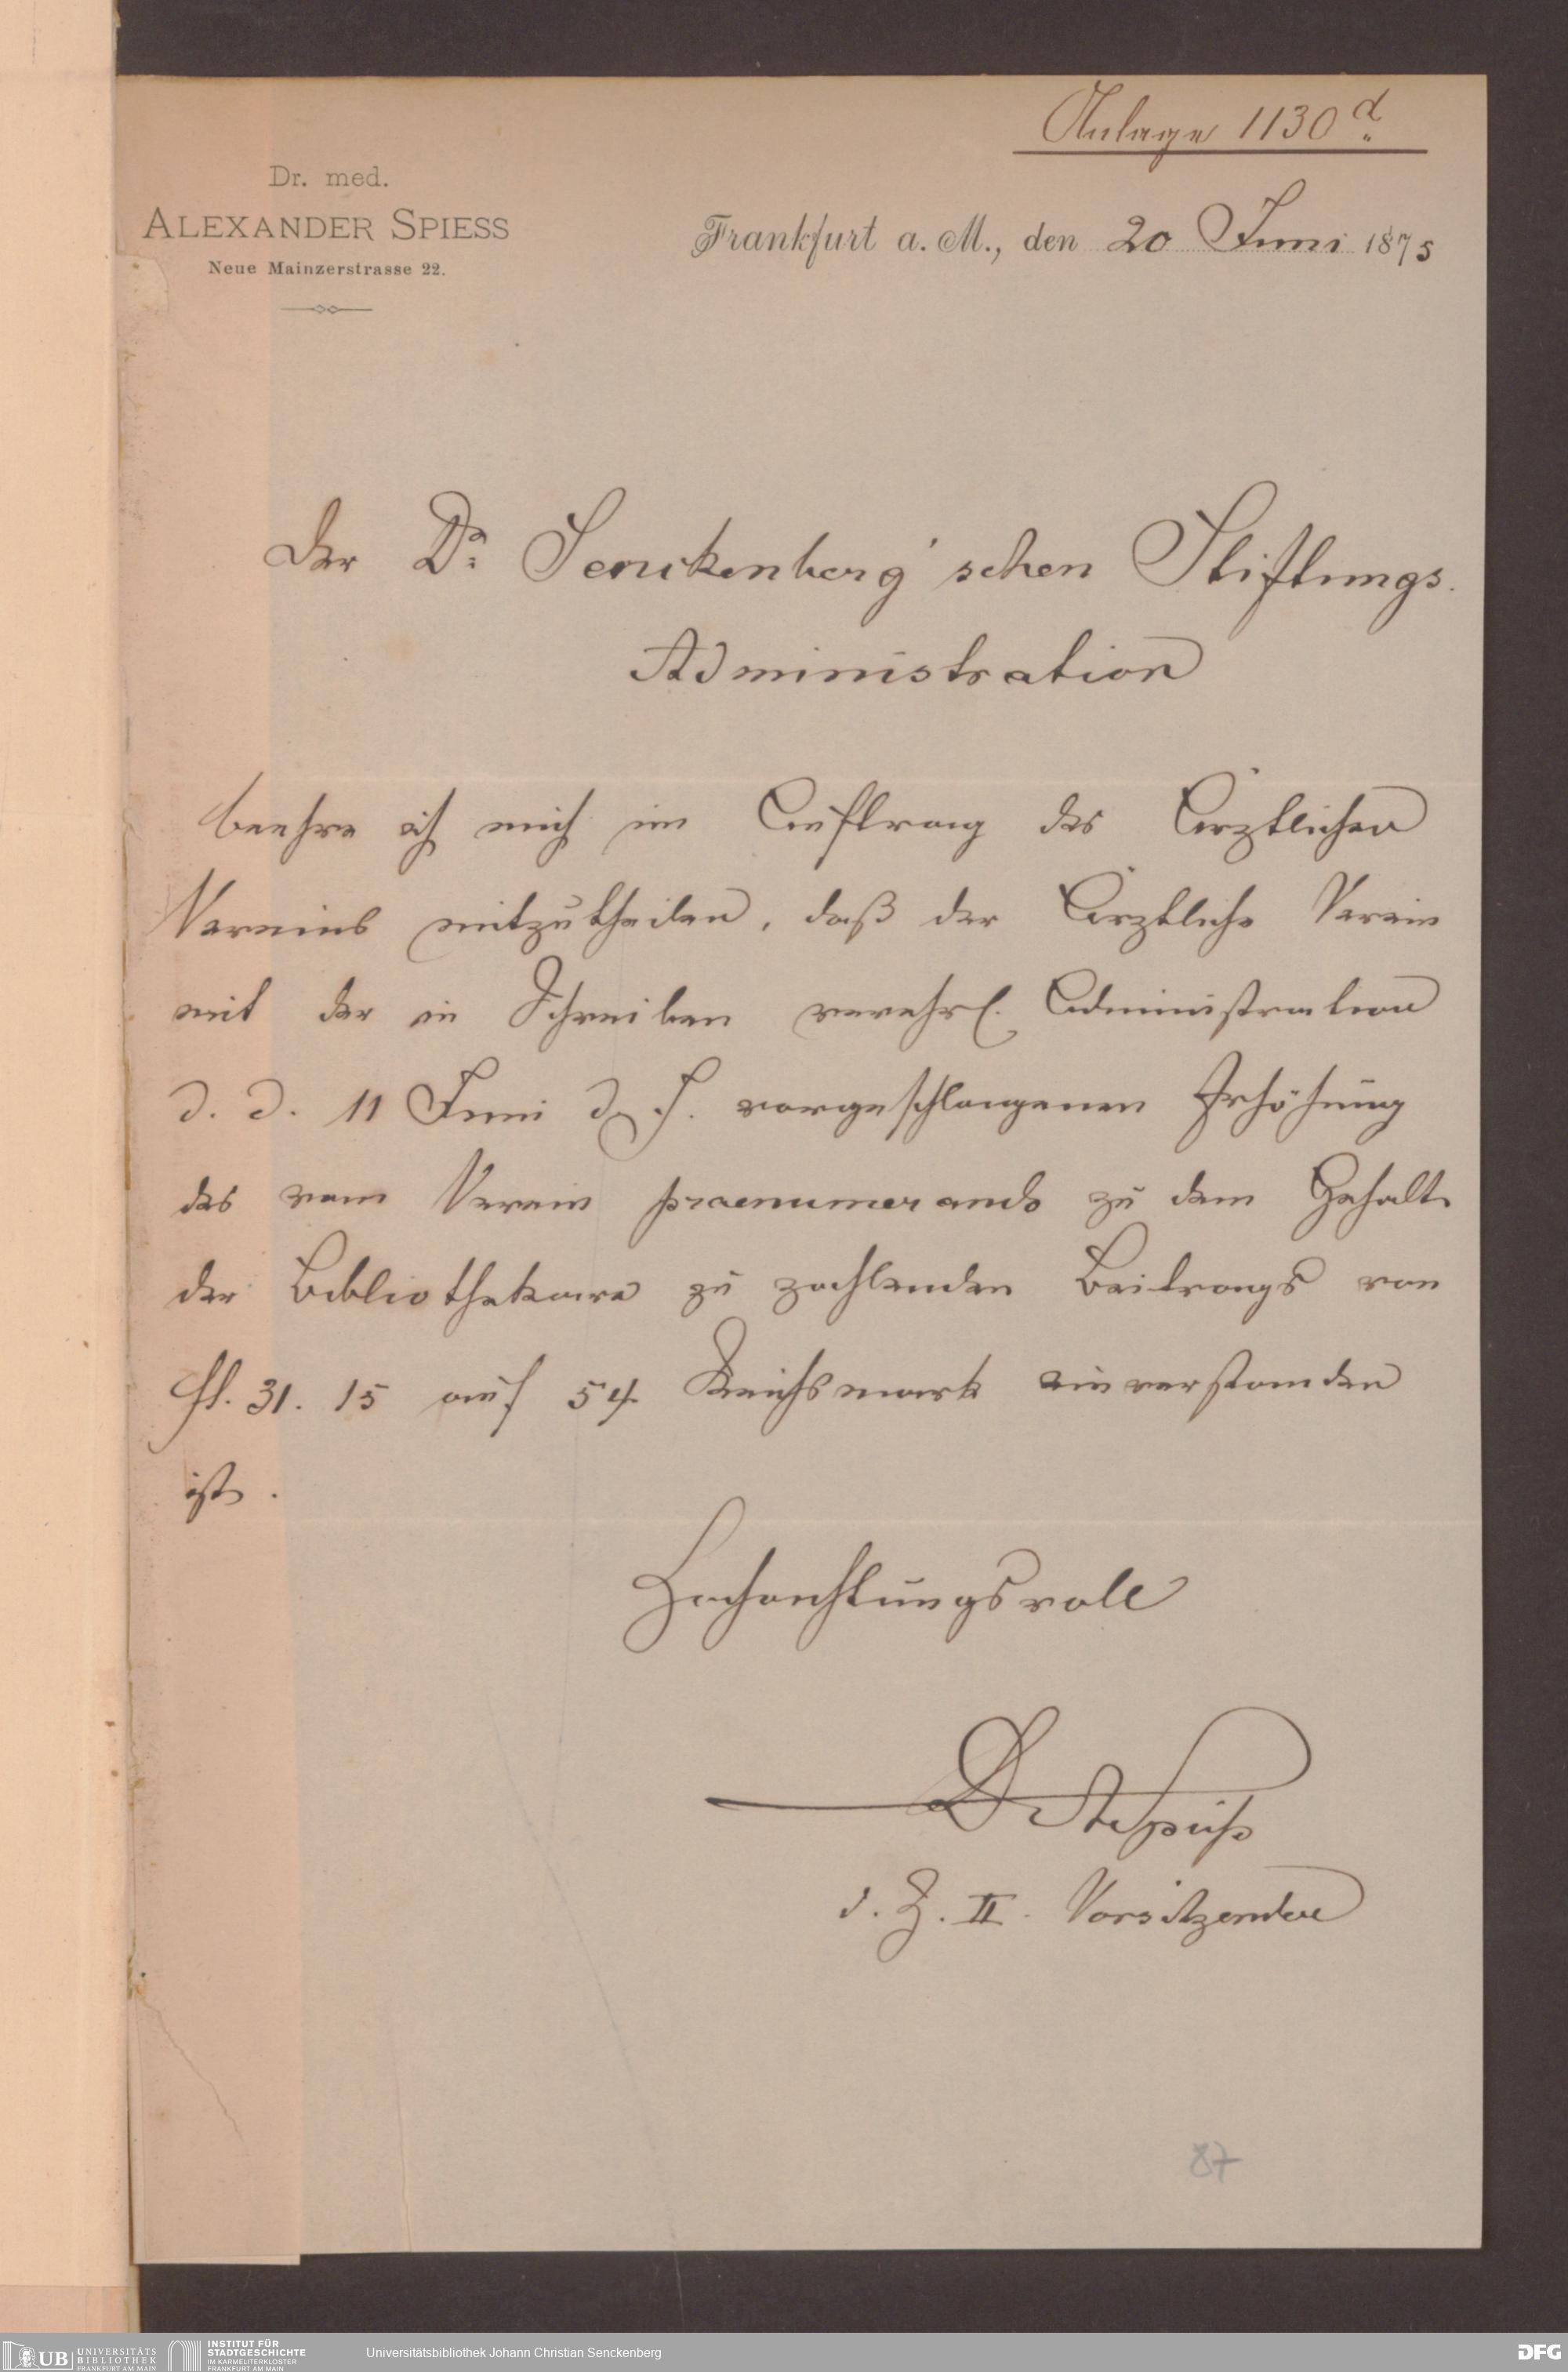 Anlage 1130 d.
Dr. med.
ALEXANDER SPIESS
Neue Mainzerstrasse 22.
Frankfurt a. M., den 20 Juni 1875
Der Dr. Senckenberg'schen Stiftungs-
Administration
beehre ich mich im Auftrag des Ärztlichen
Vereins mitzutheilen, daß der Ärztliche Verein
mit der in Schreiben verehrl. Administration
d. d. 11 Juni d. J. vorgeschlagenen Erhöhung
des vom Verein praenumerando zu dem Gehalte
der Bibliothekare zu zahlenden Beitrags von
fl. 31. 15 auf 54 Reichsmark einverstanden
ist.
Hochachtungsvoll
Dr A Spieß
d. Z. II. Vorsitzender
87
UB UNIVERSITÄTS
BIBLIOTHEK
FRANKFURT AM MAIN
INSTITUT FÜR
STADTGESCHICHTE
IM KARMELITERKLOSTER
FRANKFURT AM MAIN
Universitätsbibliothek Johann Christian Senckenberg
DFG